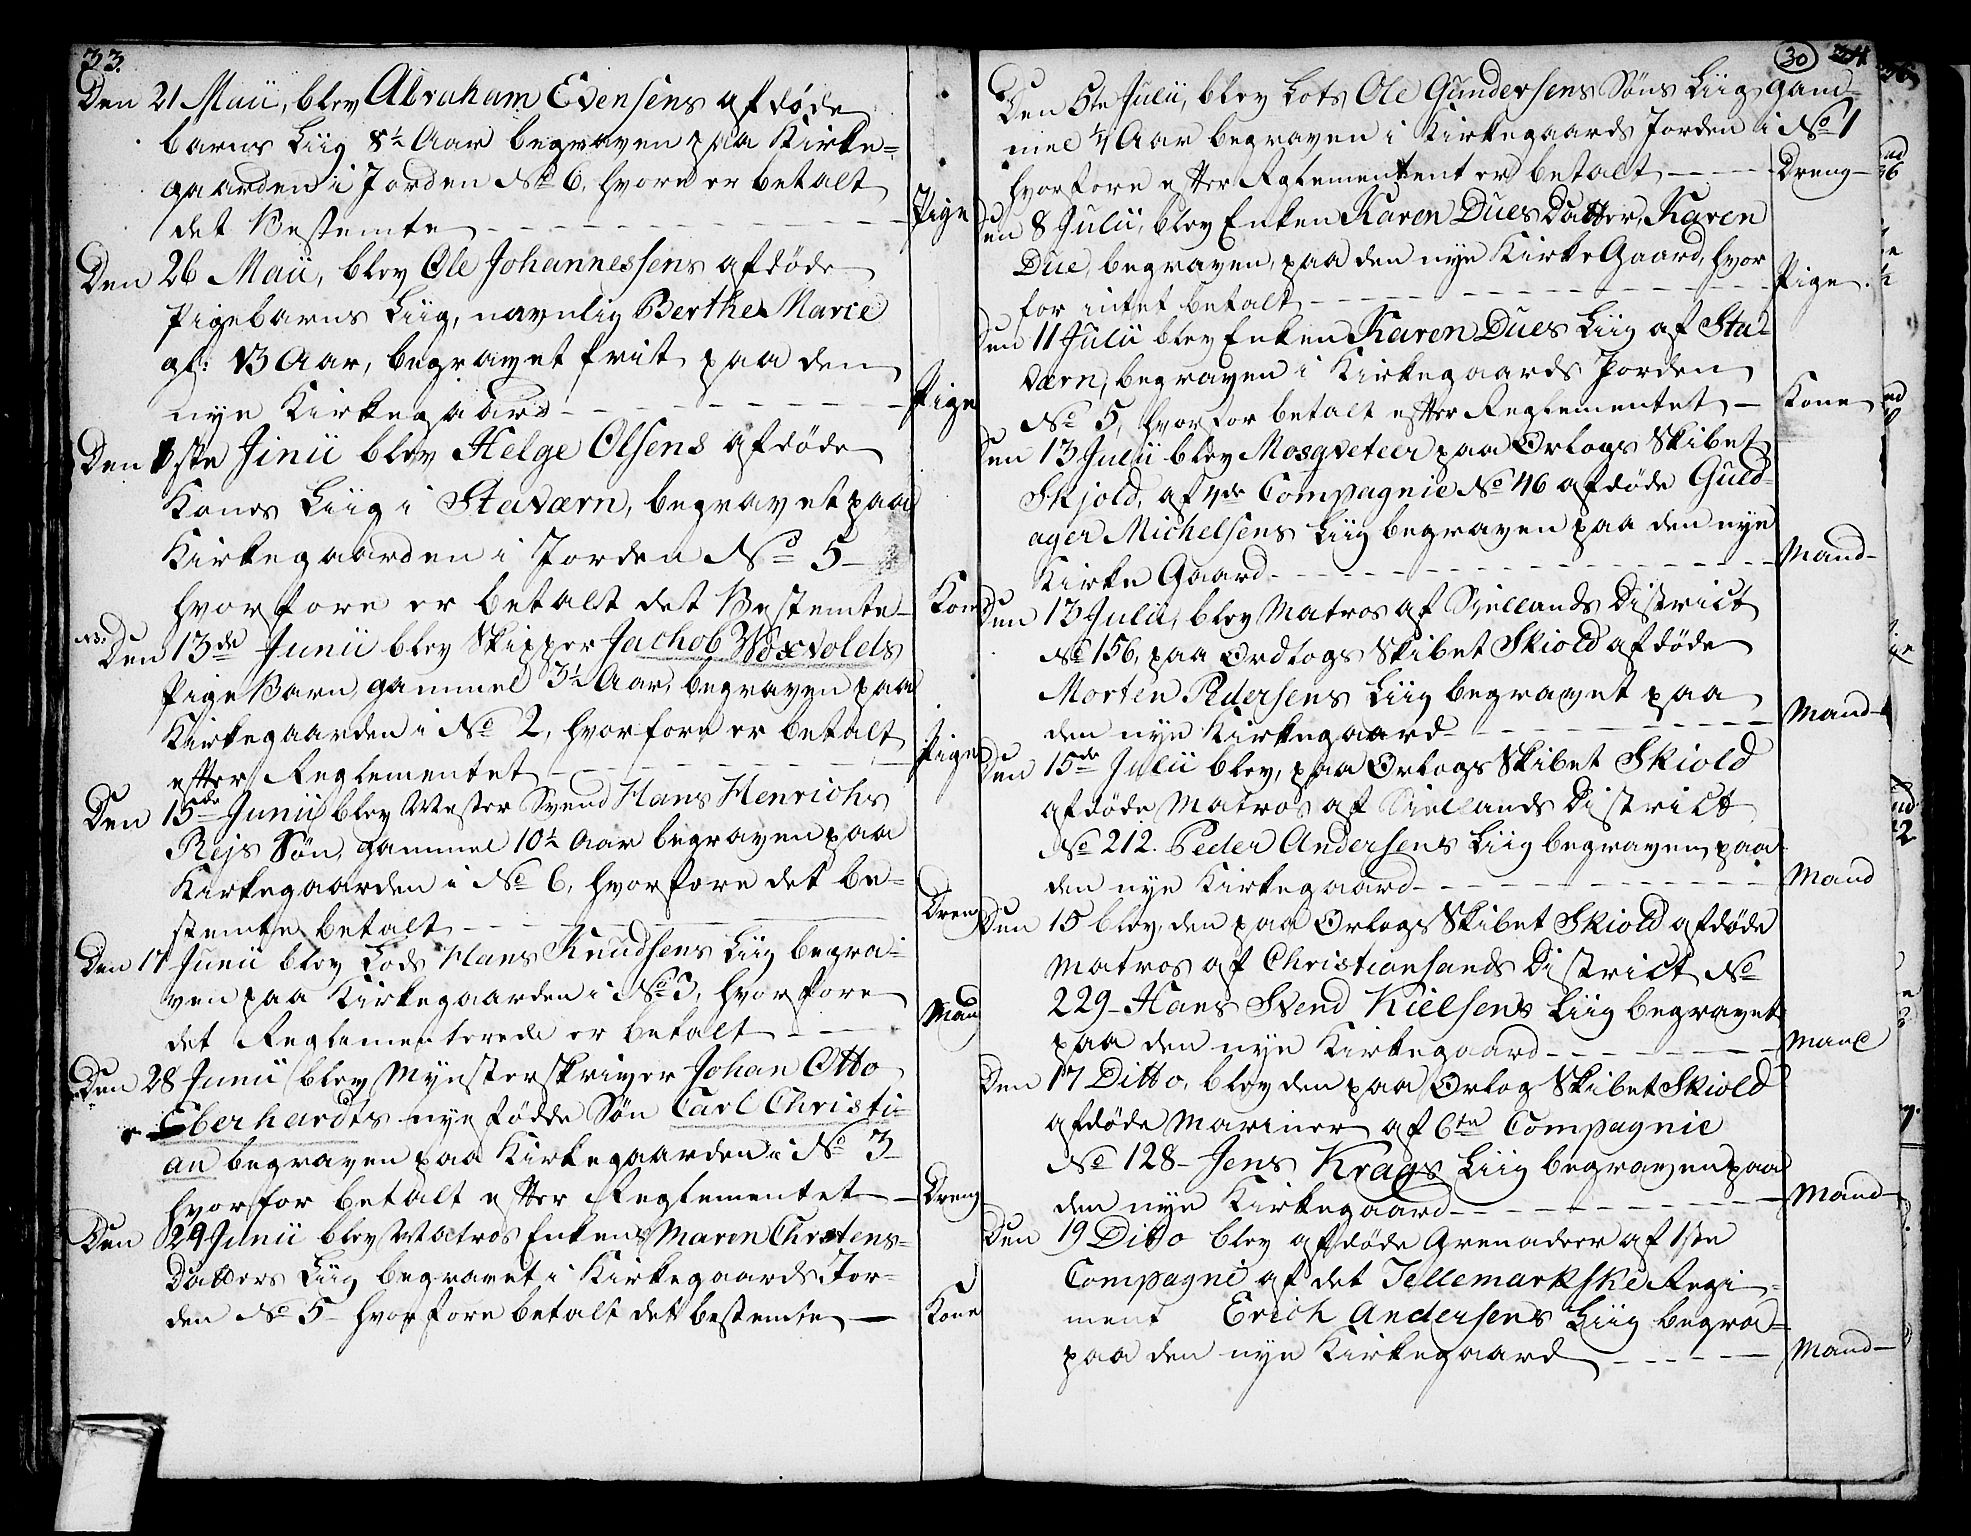 33.
Den 21 Maii, blev Abraham Evensens afdøde
barns Liig 8½ Aar begraven paa Kirke=
gaarden i Jorden No 6, hvore er betalt
det Bestemte - - - Pige
Den 26 Maii, blev Ole Johannessens afdøde
Pigebarns Liig, navnlig Berthe Marie
gl: 13 Aar, begravet frit paa den
nye Kirkegaard - - - Pige
Den 1ste Jinii blev Helge Olsens afdøde
Kones Liig i Staværn, begravet paa
Kirkegaarden i Jorden No 5 -
hvorfore er betalt det Bestemte - Kone
NB. Den 13de Junii blev Skipper Jachob Woxvolds
Pige Barn gammel 3½ Aar, begraven paa
Kirkegaarden i No 2, hvorfore er betalt
efter Reglementet - - - Pige
Den 15de Junii blev Mester Svend Hans Henrichs
Rejs Søn, gammel 10½ Aar begraven paa
Kirkegaarden i No 6, hvorfore det be=
stemte betalt - - - Dreng
Den 17 Junii blev Lods Hans Knudsens Liig begra=
ven paa Kirkegaarden i No 3, hvorfore
det Reglementerede er betalt - - Man
Den 28 Junii blev Mynsterskriver Johan Otto
Eberhardts nye fødde Søn Carl Christi=
an begraven paa Kirkegaarden i No 3
hvorfor betalt efter Reglementet - Dreng
Den 29 Junii blev Matros Enkens Maren Chrstens=
Datters Liig begravet i Kirkegaards Jor=
den No 5 - hvorfore betalt det bestemte - Kone
30
Den 5te Julii, blev Lots Ole Gundersens Søns Liig gam=
mel ¼ Aar begraven i Kirkegaards Jorden i No 1
hvorfore efter Reglementent er betalt - - - Dreng -
Den 8 Julii, blev Enken Karen Dues Datter, Karen
Due, begraven, paa den nye Kirke Gaard, hvor
for intet betalt - - - Pige.
Den 11 Julii blev Enken Karen Dues Liig af Sta=
værn, begraven i Kirkegaards Jorden
No 5, hvorfor betalt efter Reglementet - Kone
Den 13 Julii blev Mosqveteer paa Orlogs Skibet
Skjold, af 4de Compagnie No 46 afdøde Guld=
ager Michelsens Liig begraven paa den nye
Kirke Gaard - - - Mand -
Den 13 Julii, blev Matros af Siellands District
No 156, paa Ordlogs Skibet Skiold afdøde
Morten Pedersens Liig begravet paa
den nye Kirkegaard - - - Mand -
Den 15de Julii blev, paa Orlogs Skibet Skiold
afdøde Matros af Siellands District
No 212. Peder Andersens Liig begraven, paa
den nye Kirkegaard - - - Mand
Den 15 blev, den paa Orlogs Skibet Skiold afdøde
Matros af Christiansands District No
229 - Hans Svend Kielsens Liig begravet
paa den nye Kirkegaard - - - Mand
Den 17 Ditto, blev den paa Orlog Skibet Skiold
afdøde Mariner af 6te Compagnie
No 128 - Jens Krags Liig begraven paa
den nye Kirkegaard - - - Mand -
Den 19 Ditto blev afdøde Grenadeer af 1ste
Compagni af det Tellemarkske Regi=
ment Erich Andersens Liig begra=
paa den nye Kirkegaard - - - Mand -